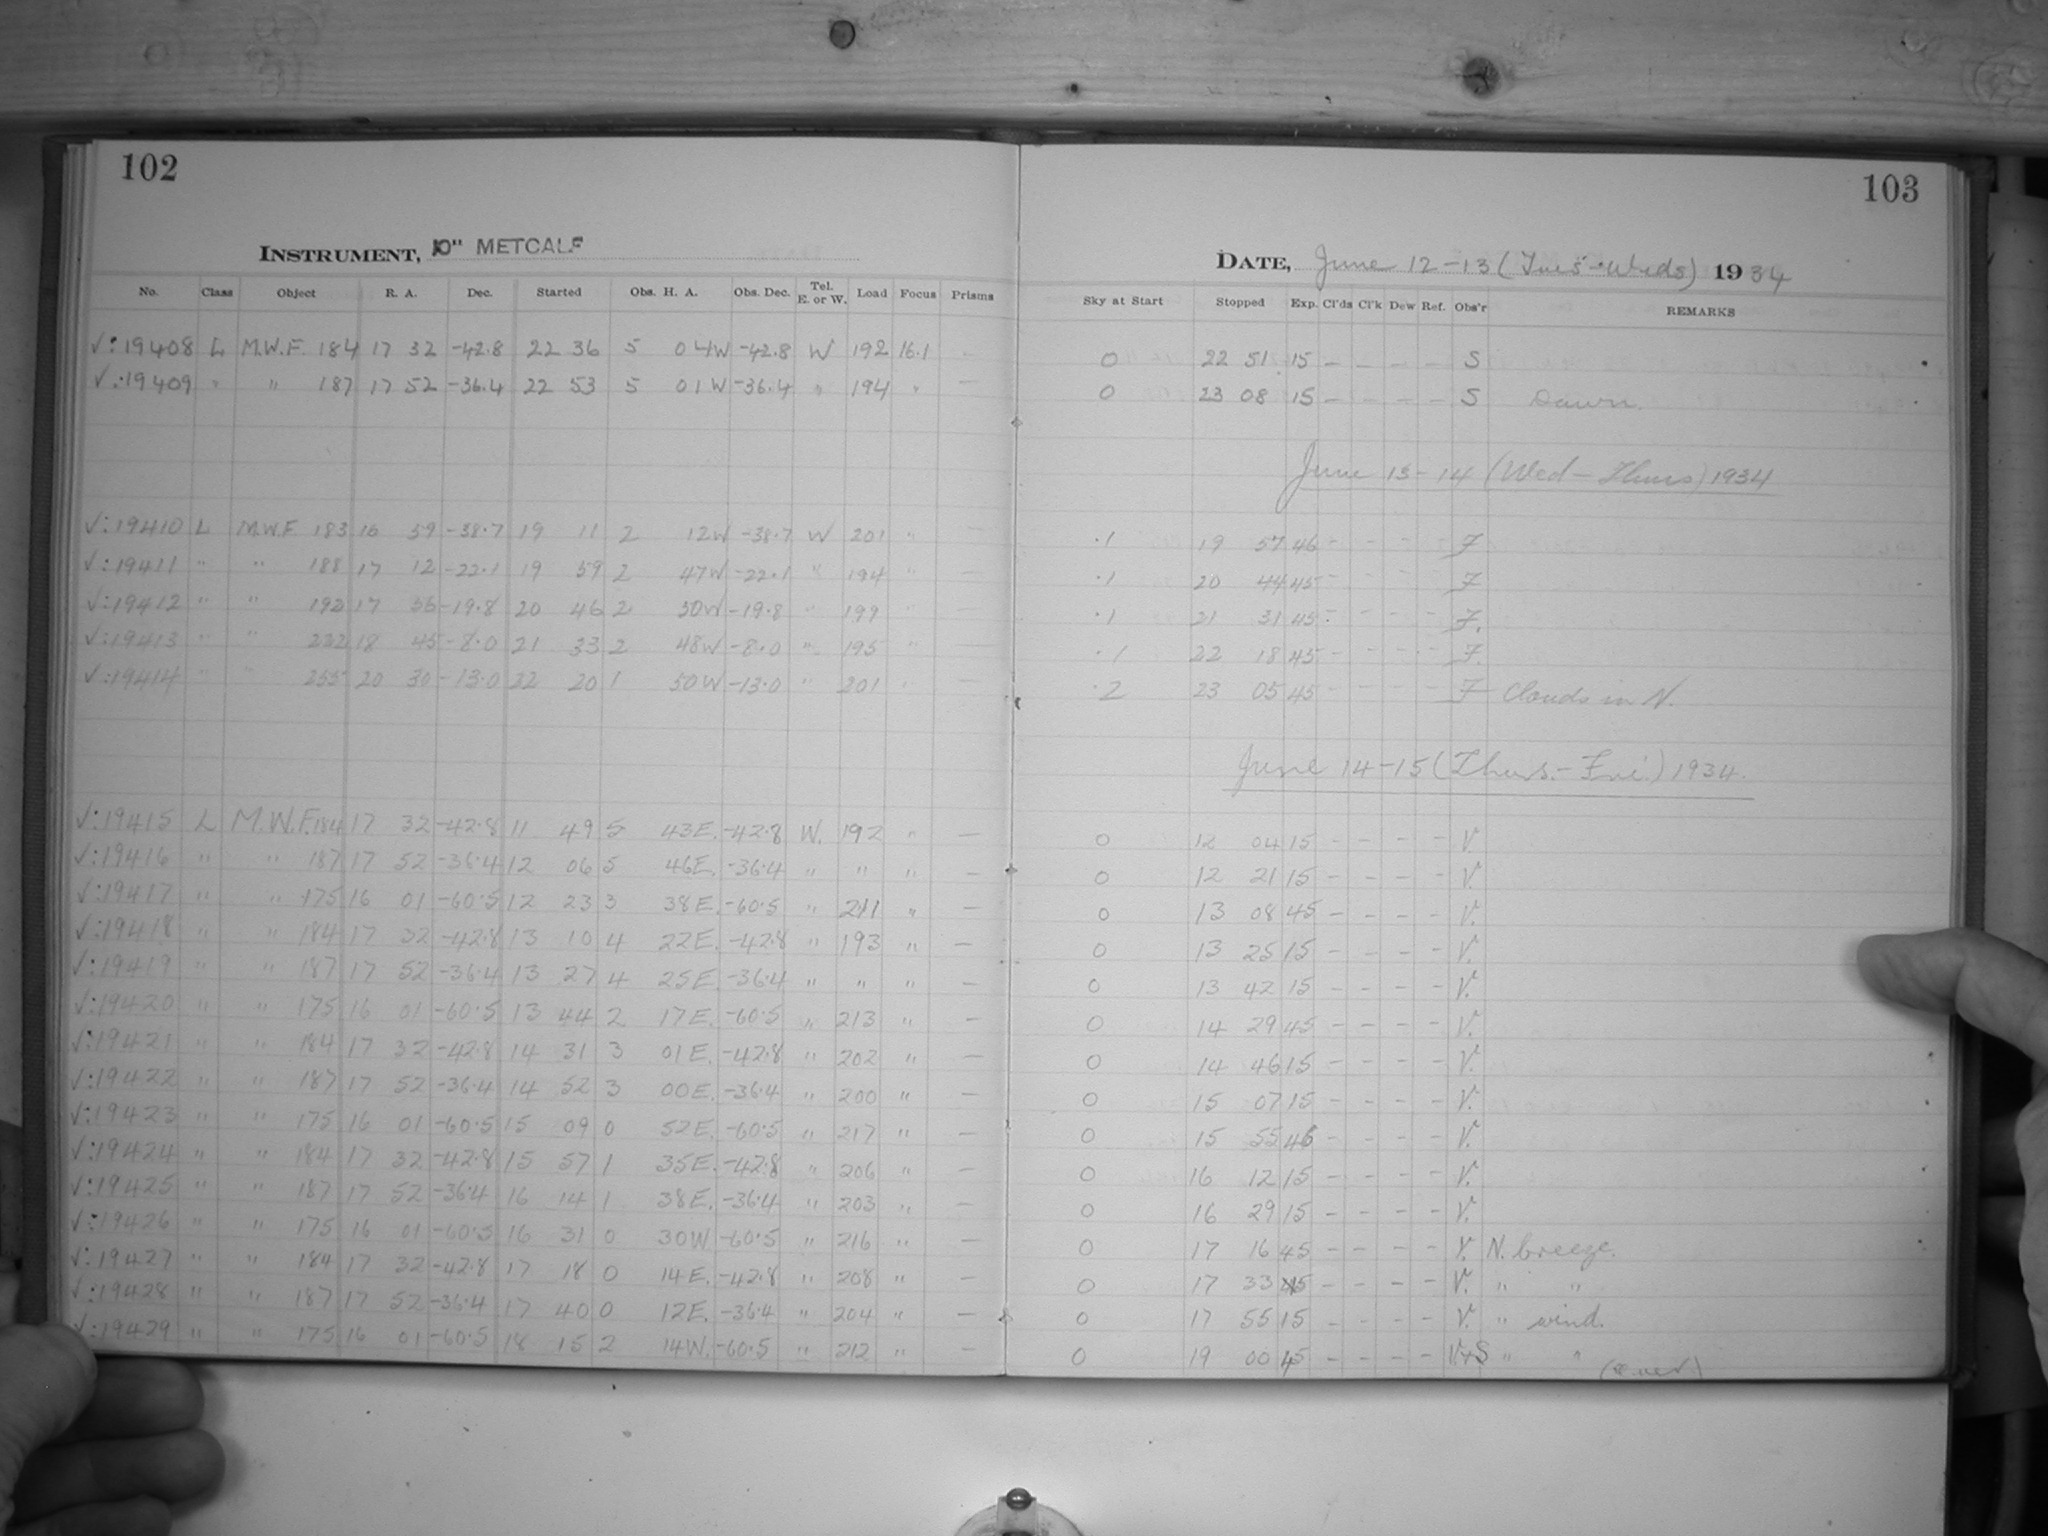 102
INSTRUMENT, 10" METCALF
No. Class Object R. A. Dec. Started Obs. H. A. Obs. Dec. Tel. E. or W. Load Focus Prisms
√:19408 L M.W.F. 184 17 32 -42.8 22 36 5 04W -42.8 W 192 16.1 —
√:19409 " " 187 17 52 -36.4 22 53 5 01W -36.4 " 194 " —
√:19410 L M.W.F. 183 16 59 -38.7 19 11 2 12W -38.7 W 201 " —
√:19411 " " 188 17 12 -22.1 19 59 2 47W -22.1 " 194 " —
√:19412 " " 192 17 56 -19.8 20 46 2 50W -19.8 " 199 " —
√:19413 " " 232 18 45 -8.0 21 33 2 48W -8.0 " 195 " —
√:19414 " " 255 20 30 -13.0 22 20 1 50W -13.0 " 201 " —
√:19415 L M.W.F. 184 17 32 -42.8 11 49 5 43E. -42.8 W. 192 " —
√:19416 " " 187 17 52 -36.4 12 06 5 46E. -36.4 " " " —
√:19417 " " 175 16 01 -60.5 12 23 3 38E. -60.5 " 211 " —
√:19418 " " 184 17 32 -42.8 13 10 4 22E. -42.8 " 193 " —
√:19419 " " 187 17 52 -36.4 13 27 4 25E. -36.4 " " " —
√:19420 " " 175 16 01 -60.5 13 44 2 17E. -60.5 " 213 " —
√:19421 " " 184 17 32 -42.8 14 31 3 01E. -42.8 " 202 " —
√:19422 " " 187 17 52 -36.4 14 52 3 00E. -36.4 " 200 " —
√:19423 " " 175 16 01 -60.5 15 09 0 52E. -60.5 " 217 " —
√:19424 " " 184 17 32 -42.8 15 57 1 35E. -42.8 " 206 " —
√:19425 " " 187 17 52 -36.4 16 14 1 38E. -36.4 " 203 " —
√:19426 " " 175 16 01 -60.5 16 31 0 30W. -60.5 " 216 " —
√:19427 " " 184 17 32 -42.8 17 18 0 14E. -42.8 " 208 " —
√:19428 " " 187 17 52 -36.4 17 40 0 12E. -36.4 " 204 " —
√:19429 " " 175 16 01 -60.5 18 15 2 14W. -60.5 " 212 " —
103
DATE, June 12-13 (Tues-Weds) 1934
Sky at Start Stopped Exp. Cl'ds Cl'k Dew Ref. Obs'r REMARKS
0 22 51 15 – – – – S
0 23 08 15 – – – – S Dawn.
June 13-14 (Wed-Thurs) 1934
.1 19 57 46 – – – – F
.1 20 44 45 – – – – F
.1 21 31 45 – – – – F.
.1 22 18 45 – – – – F.
.2 23 05 45 – – – – F Clouds in N.
June 14-15 (Thurs.-Fri.) 1934.
0 12 04 15 – – – – V.
0 12 21 15 – – – – V.
0 13 08 45 – – – – V.
0 13 25 15 – – – – V.
0 13 42 15 – – – – V.
0 14 29 45 – – – – V.
0 14 46 15 – – – – V.
0 15 07 15 – – – – V.
0 15 55 46 – – – – V.
0 16 12 15 – – – – V.
0 16 29 15 – – – – V.
0 17 16 45 – – – – V. N. breeze.
0 17 33 15 – – – – V. " "
0 17 55 15 – – – – V. " wind.
0 19 00 45 – – – – V.+S " "
(over)